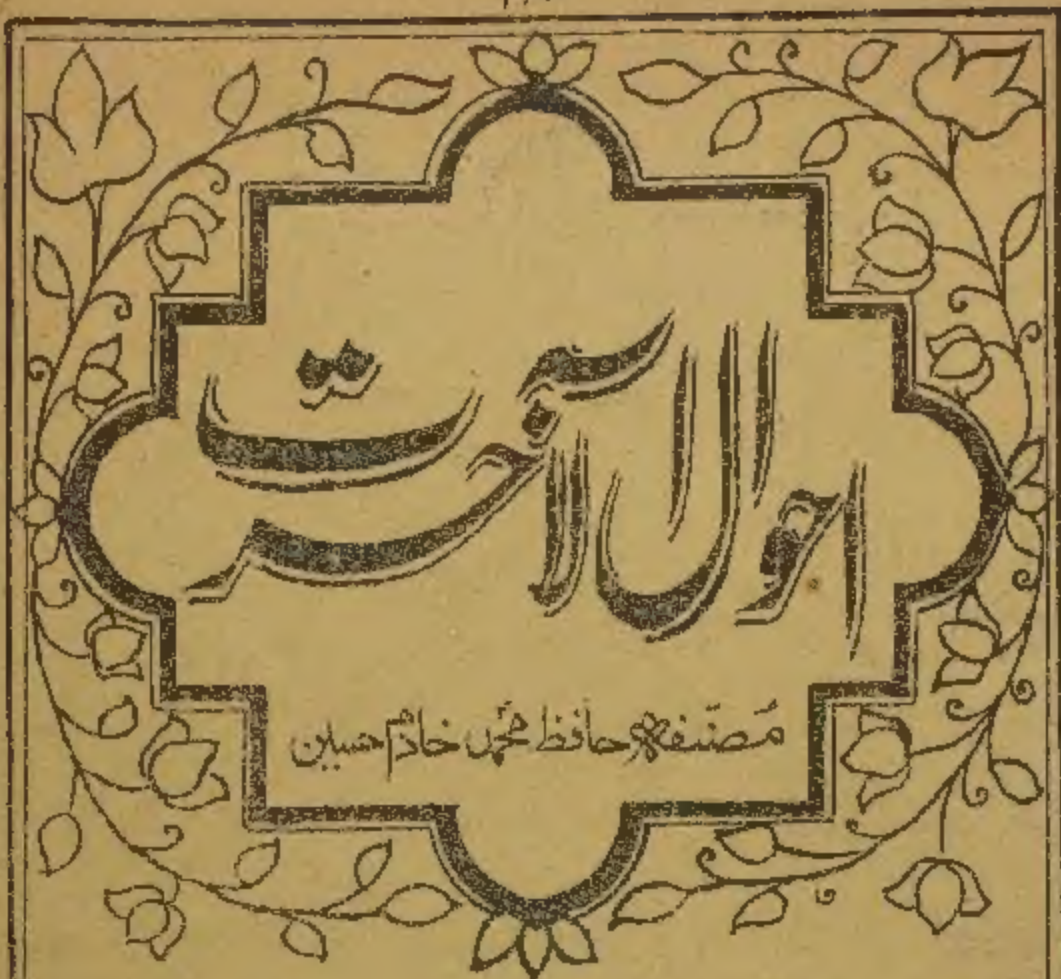 احوال الآخرت
مصنفہ حافظ محمد خادم حسین